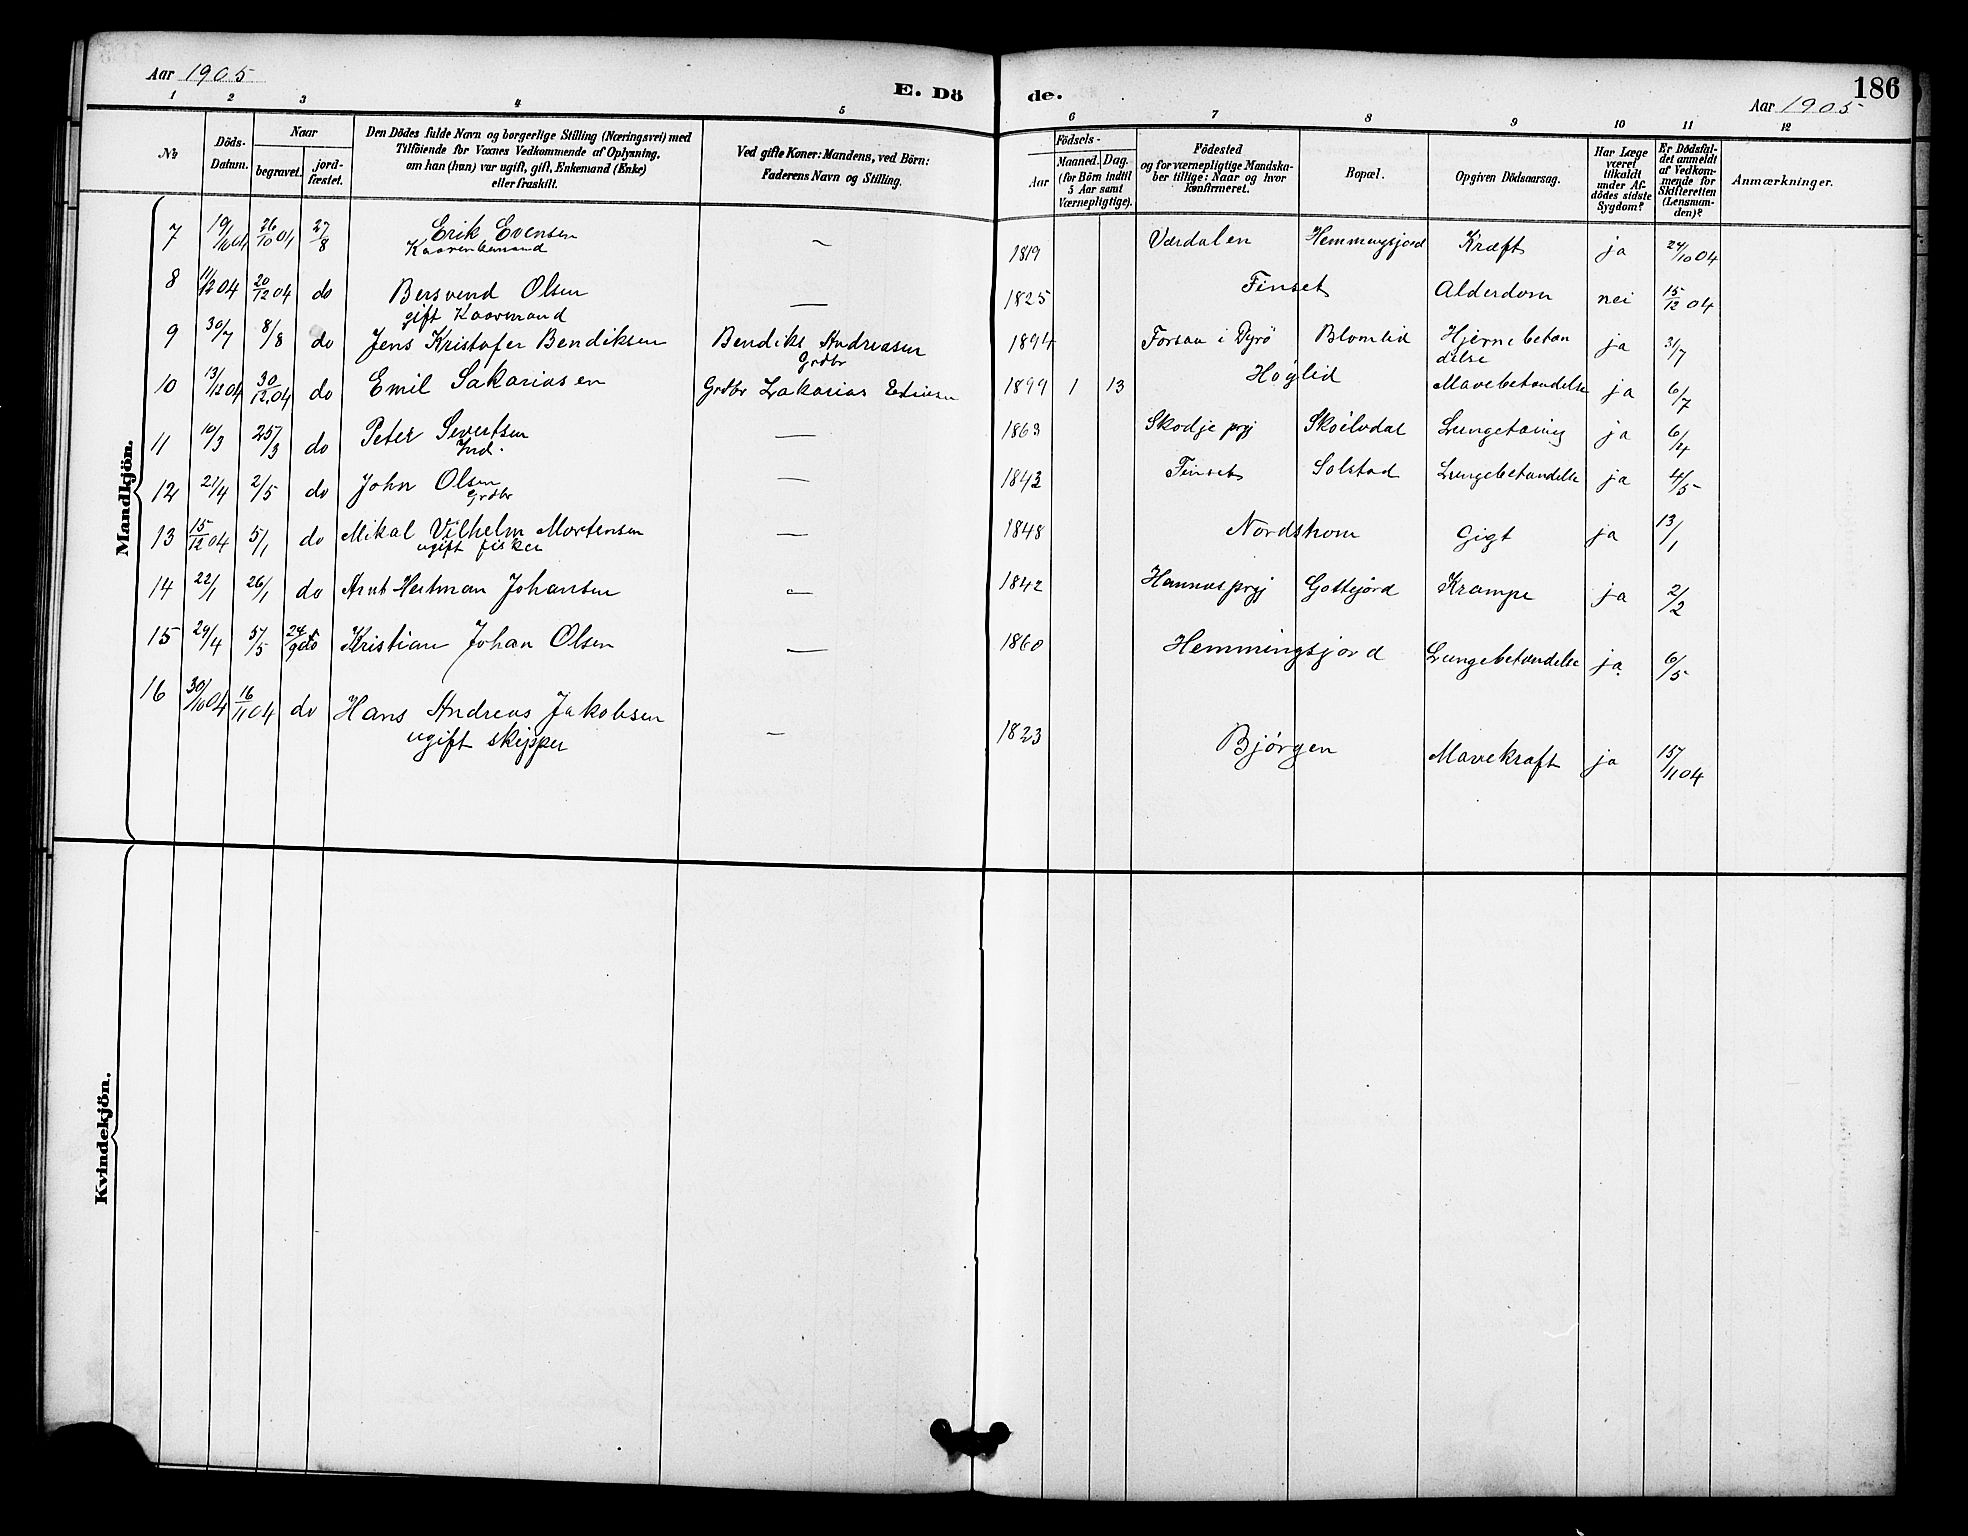 Aar 1905
E. Dö de.
186
Aar 1905
1 2 3 4 5 6 7 8 9 10 11 12
No
Döds-Datum.
Naar
begravet.
jord-fæstet.
Den Dödes fulde Navn og borgerlige Stilling (Næringsvei) med
Tilföiende for Voxnes Vedkommende af Oplysning,
om han (hun) var ugift, gift, Enkemand (Enke)
eller fraskilt.
Ved gifte Koner: Mandens, ved Börn:
Faderens Navn og Stilling.
Födsels-
Aar
Maaned. Dag.
(for Börn indtil
5 Aar samt
Værnepligtige).
Födested
og for værnepligtige Mandska-
ber tillige: Naar og hvor
Konfirmeret.
Bopæl.
Opgiven Dödsaarsag.
Har Læge
været
tilkaldt
under Af-
dödes sidste
Sygdom?
Er Dödsfal-
det anmeldt
af Vedkom-
mende for
Skifteretten
(Lensman-
den)?
Anmærkninger.
Mandkjön.
7 19/10 04 26/10 04 27/8 Erik Evensen — 1819 Værdalen Hemmingsjord Kræft ja 24/10 04
8 11/12 04 20/12 04 do Bersvend Olsen — 1825 Finset Alderdom nei 15/12 04
gift Kaarmand
9 30/7 8/8 do Jens Kristofer Bendiksen Bendiks Andreasen 1894 Forsaa i Dyrø Blomlid Hjernebetæn ja 31/7
Grdbr delse
10 13/12 04 30/12 04 do Emil Sakariasen Grdbr Zakarias 1899 1 13 Høglid Mavebetændelse ja 6/7
11 10/3 25/3 do Peter Severtsen — 1863 Skodje prgj Lungetæring ja 6/4
Ind.
12 21/4 2/5 do John Olsen — 1843 Finset Solstad Lungebetændelse ja 4/5
Grdbr
13 15/12 04 5/1 do Mikal Vilhelm Mortensen — 1848 Nordstrom Gigt ja 13/1
ugift fisker
14 22/1 26/1 do Arnt Hertman Johansen — 1842 prgj Gottejord Krampe ja 2/2
15 29/4 5/5 24/9 do Kristian Johan Olsen — 1860 Hemmingsjord Lungebetændelse ja 6/5
16 30/10 04 16/11 04 do Hans Andreas Jakobsen — 1823 Bjørgen Mavekræft ja 15/11 04
ugift skipper
Kvindekjön.